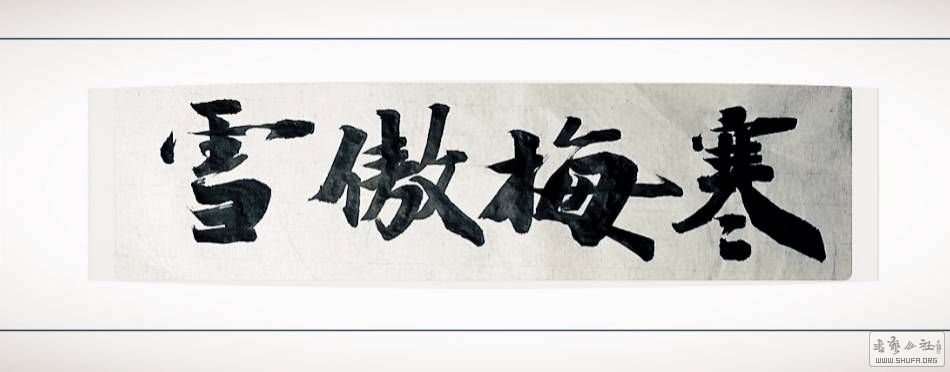 寒梅傲雪
书艺公社
WWW.SHUFA.ORG